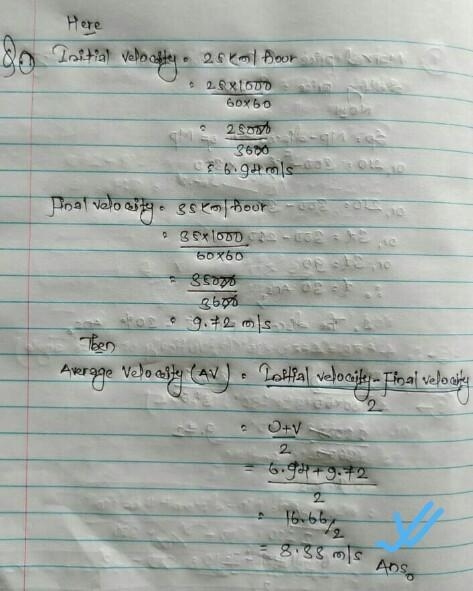 Here
Initial velocity = 25 km/hour
= 25×1000
60×60
= 25000
3600
= 6.94 m/s
Final velocity = 35 km/hour
= 35×1000
60×60
= 35000
3600
= 9.72 m/s
Then
Average velocity (AV) = Initial velocity - Final velocity
2
= U+V
2
= 6.94+9.72
2
= 16.66/2
= 8.33 m/s
Ans.